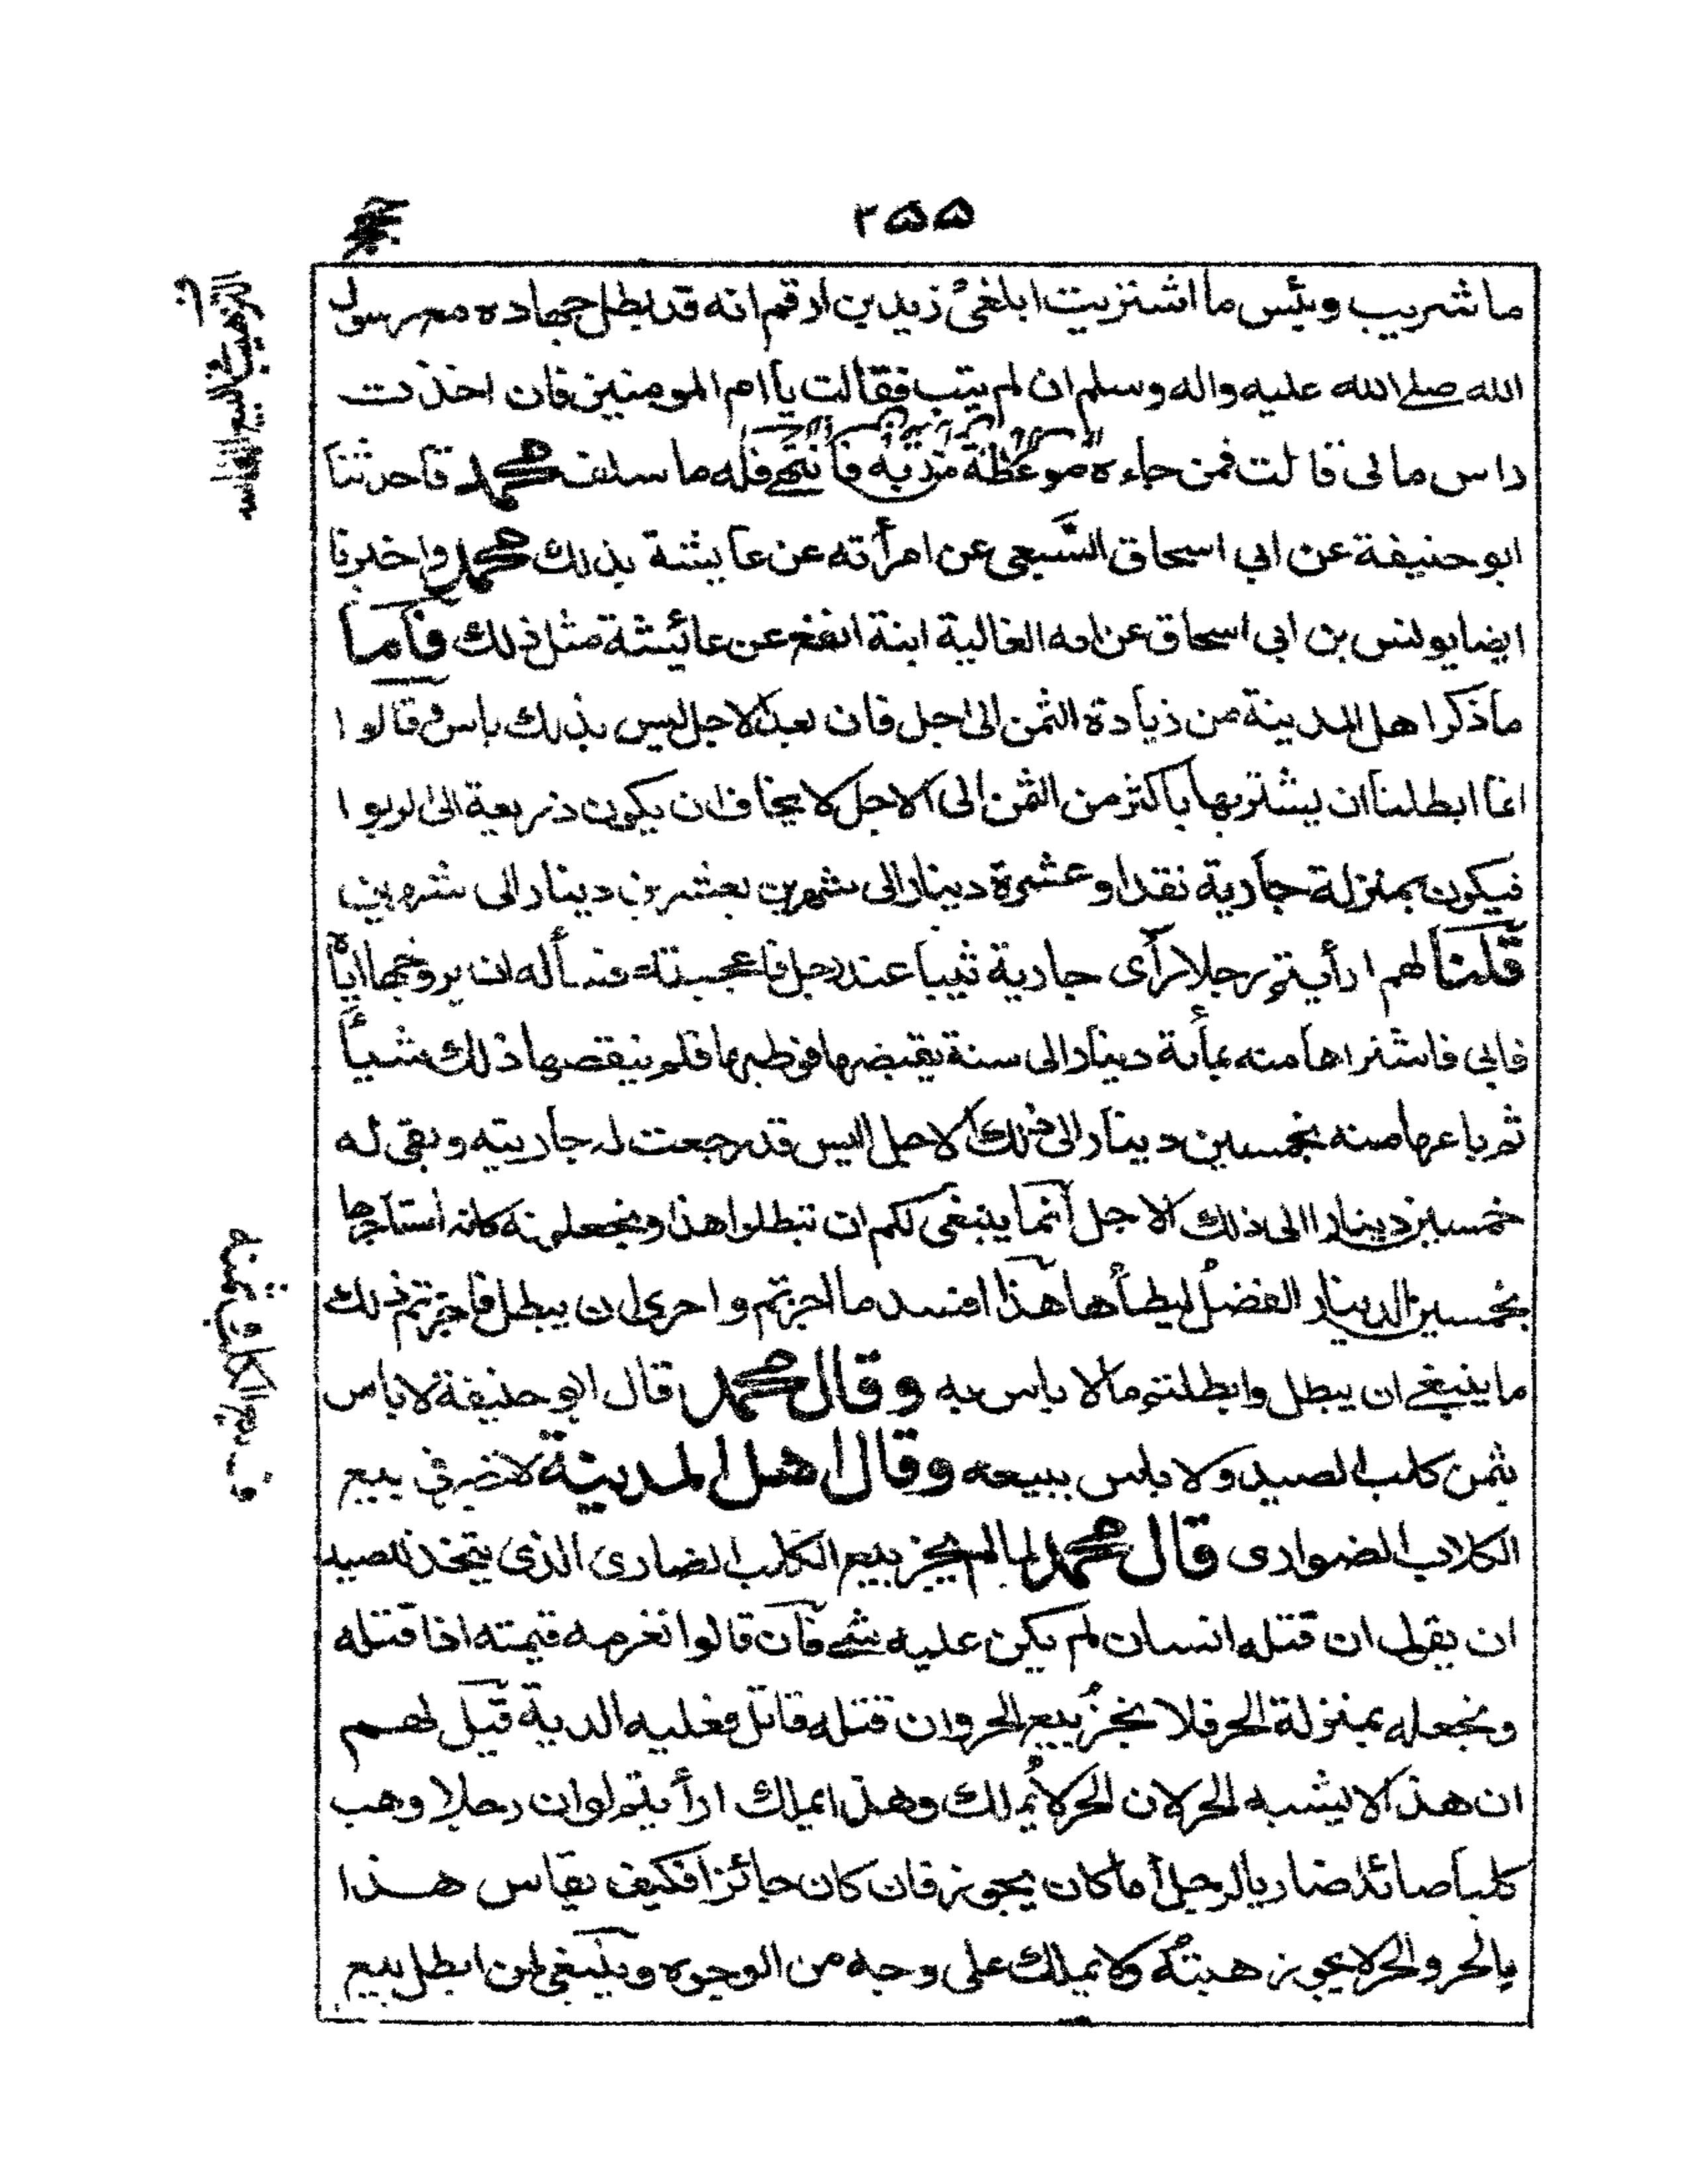 ٢٥٥
ما شريب وبئس ما اشتريت ابلغى زيد بن ارقم انه قد بطل جهاده مع رسول
الله صلے الله عليه واله وسلم ان لم يتب فقالت يا ام المومنين فان اخذت
راس مالى قالت فمن جاءه موعظة من ربه فانتهے فله ما سلف محمد قا حدثنا
ابو حنيفة عن ابي اسحاق السَّبيعى عن امرأته عن عايشة بذلك محمد واخبرنا
ايضا يونس بن ابي اسحاق عن امه الغالية ابنة انفع عن عائيشة مثل ذلك فاما
ما ذكر اهل المدينة من زيادة الثمن الى اجل فان بعد الاجل ليس بذلك باس وقالوا
انما ابطلنا ان يشتريها باكثر من الثمن الى الاجل لا يخاف ان يكون ذريعة الى الربوا
فيكون بمنزلة جارية نقدا وعشرة دينار الى شهرين بعشرين دينار الى شهرين
قلنا لهم ارأيتم رجلا رأى جارية ثيبا عند رجل فاعجبته فسأله ان يزوجها اياه
فابى فاشتراها منه بمأية دينار الى سنة يقبضها فوطيها فلم ينقصها ذلك شيأ
ثم باعها منه بخمسين دينار الى ذلك الاجل اليس قد رجعت له جاريته وبقى له
خمسين دينارا الى ذلك الاجل انما ينبغى لكم ان تبطلوا هذا وتجعلونه كانه استاجرها
بخمسين الدينار الفضل ليطأها هذا افسد ما اجزتم واحرى ان يبطل فاجزتم ذلك
ما ينبغے ان يبطل وابطلتم مالا باس به وقال محمد قال ابو حنيفة لا باس
بثمن كلب الصيد ولا باس ببيعه وقال اهل المدينة لا خير في بيع
الكلاب الضوارى قال محمد لم يجز بيع الكلب الضارى الذى يتخذ للصيد
ان يقول ان قتله انسان لم يكن عليه شے فان قالوا نغرمه قيمته اذا قتله
ونجعله بمنزلة الحر فلا نجز بيع الحر وان قتله قاتل فعليه الدية قيل لهم
ان هذا لا يشبه الحر لان الحر لا يُملك وهذا يملك ارأيتم لو ان رجلا وهب
كلبا صائدا ضاريا لرجل أما كان يجوز فان كان جائزا فكيف يقاس هذا
بالحر والحر لا يجوز هبته ولا يملك على وجه من الوجوه وينبغى لمن ابطل بيع